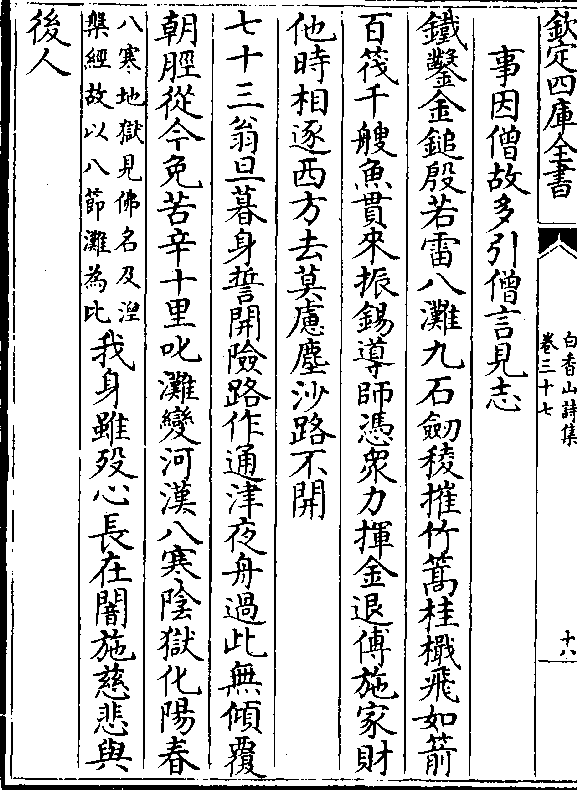 欽定四庫全書
白香山詩集
卷三十七
十八
事因僧故多引僧言見志
鐵鑿金鎚殷若雷八灘九石劒稜摧竹篙桂檝飛如箭
百筏千艘魚貫來振錫導師憑衆力揮金退傅施家財
他時相逐西方去莫慮塵沙路不開
七十三翁旦暮身誓開險路作通津夜舟過此無傾覆
朝脛從今免苦辛十里叱灘變河漢八寒陰獄化陽春
八寒地獄見佛名及湼
槃經故以八節灘為比
我身雖殁心長在闇施慈悲與
後人